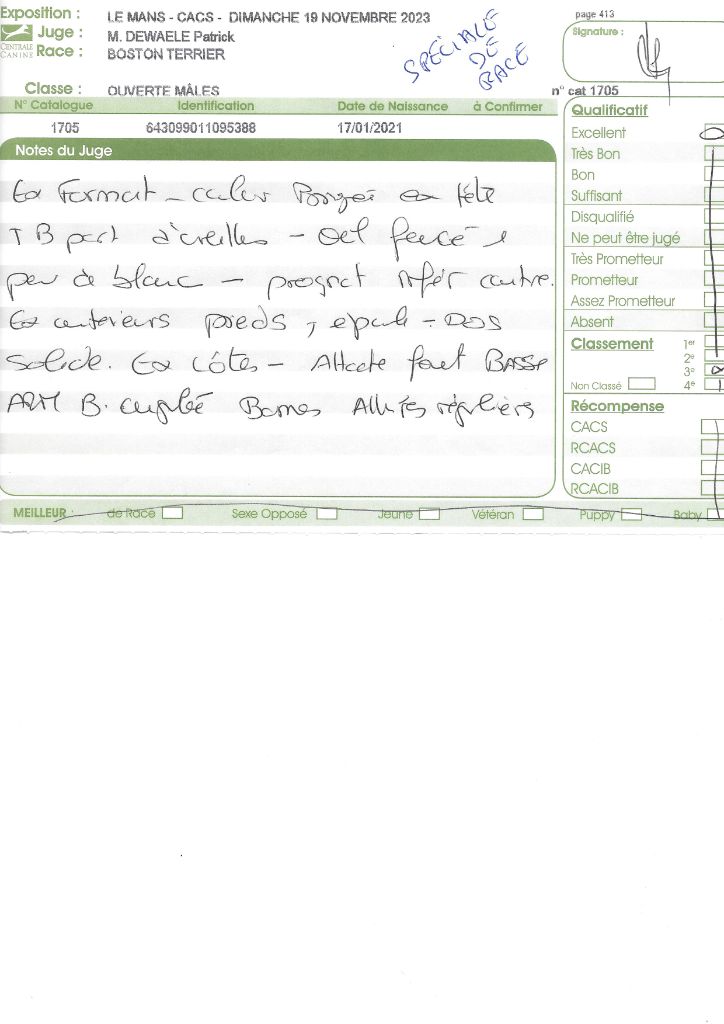 Exposition : LE MANS - CACS - DIMANCHE 19 NOVEMBRE 2023
Juge : M. DEWAELE Patrick
CENTRALE CANINE
Race : BOSTON TERRIER
SPÉCIALE
DE
RACE
page 413
Signature :
Classe : OUVERTE MÂLES
n° cat 1705
N° Catalogue Identification Date de Naissance à Confirmer
1705 643099011095388 17/01/2021
Notes du Juge
Ex Format - couleur ex tête
TB port d'oreilles - Oeil foncé
peu de blanc - prognat infér contre.
Ex anterieurs pieds, epaule - Dos
solide. Ex côtes - Attache fouet BASSE
ARR B. angulé Bonnes Allures régulières
Qualificatif
Excellent
Très Bon
Bon
Suffisant
Disqualifié
Ne peut être jugé
Très Prometteur
Prometteur
Assez Prometteur
Absent
Classement 1er
2e
3e
Non Classé 4e
Récompense
CACS
RCACS
CACIB
RCACIB
MEILLEUR : de Race Sexe Opposé Jeune Vétéran Puppy Baby